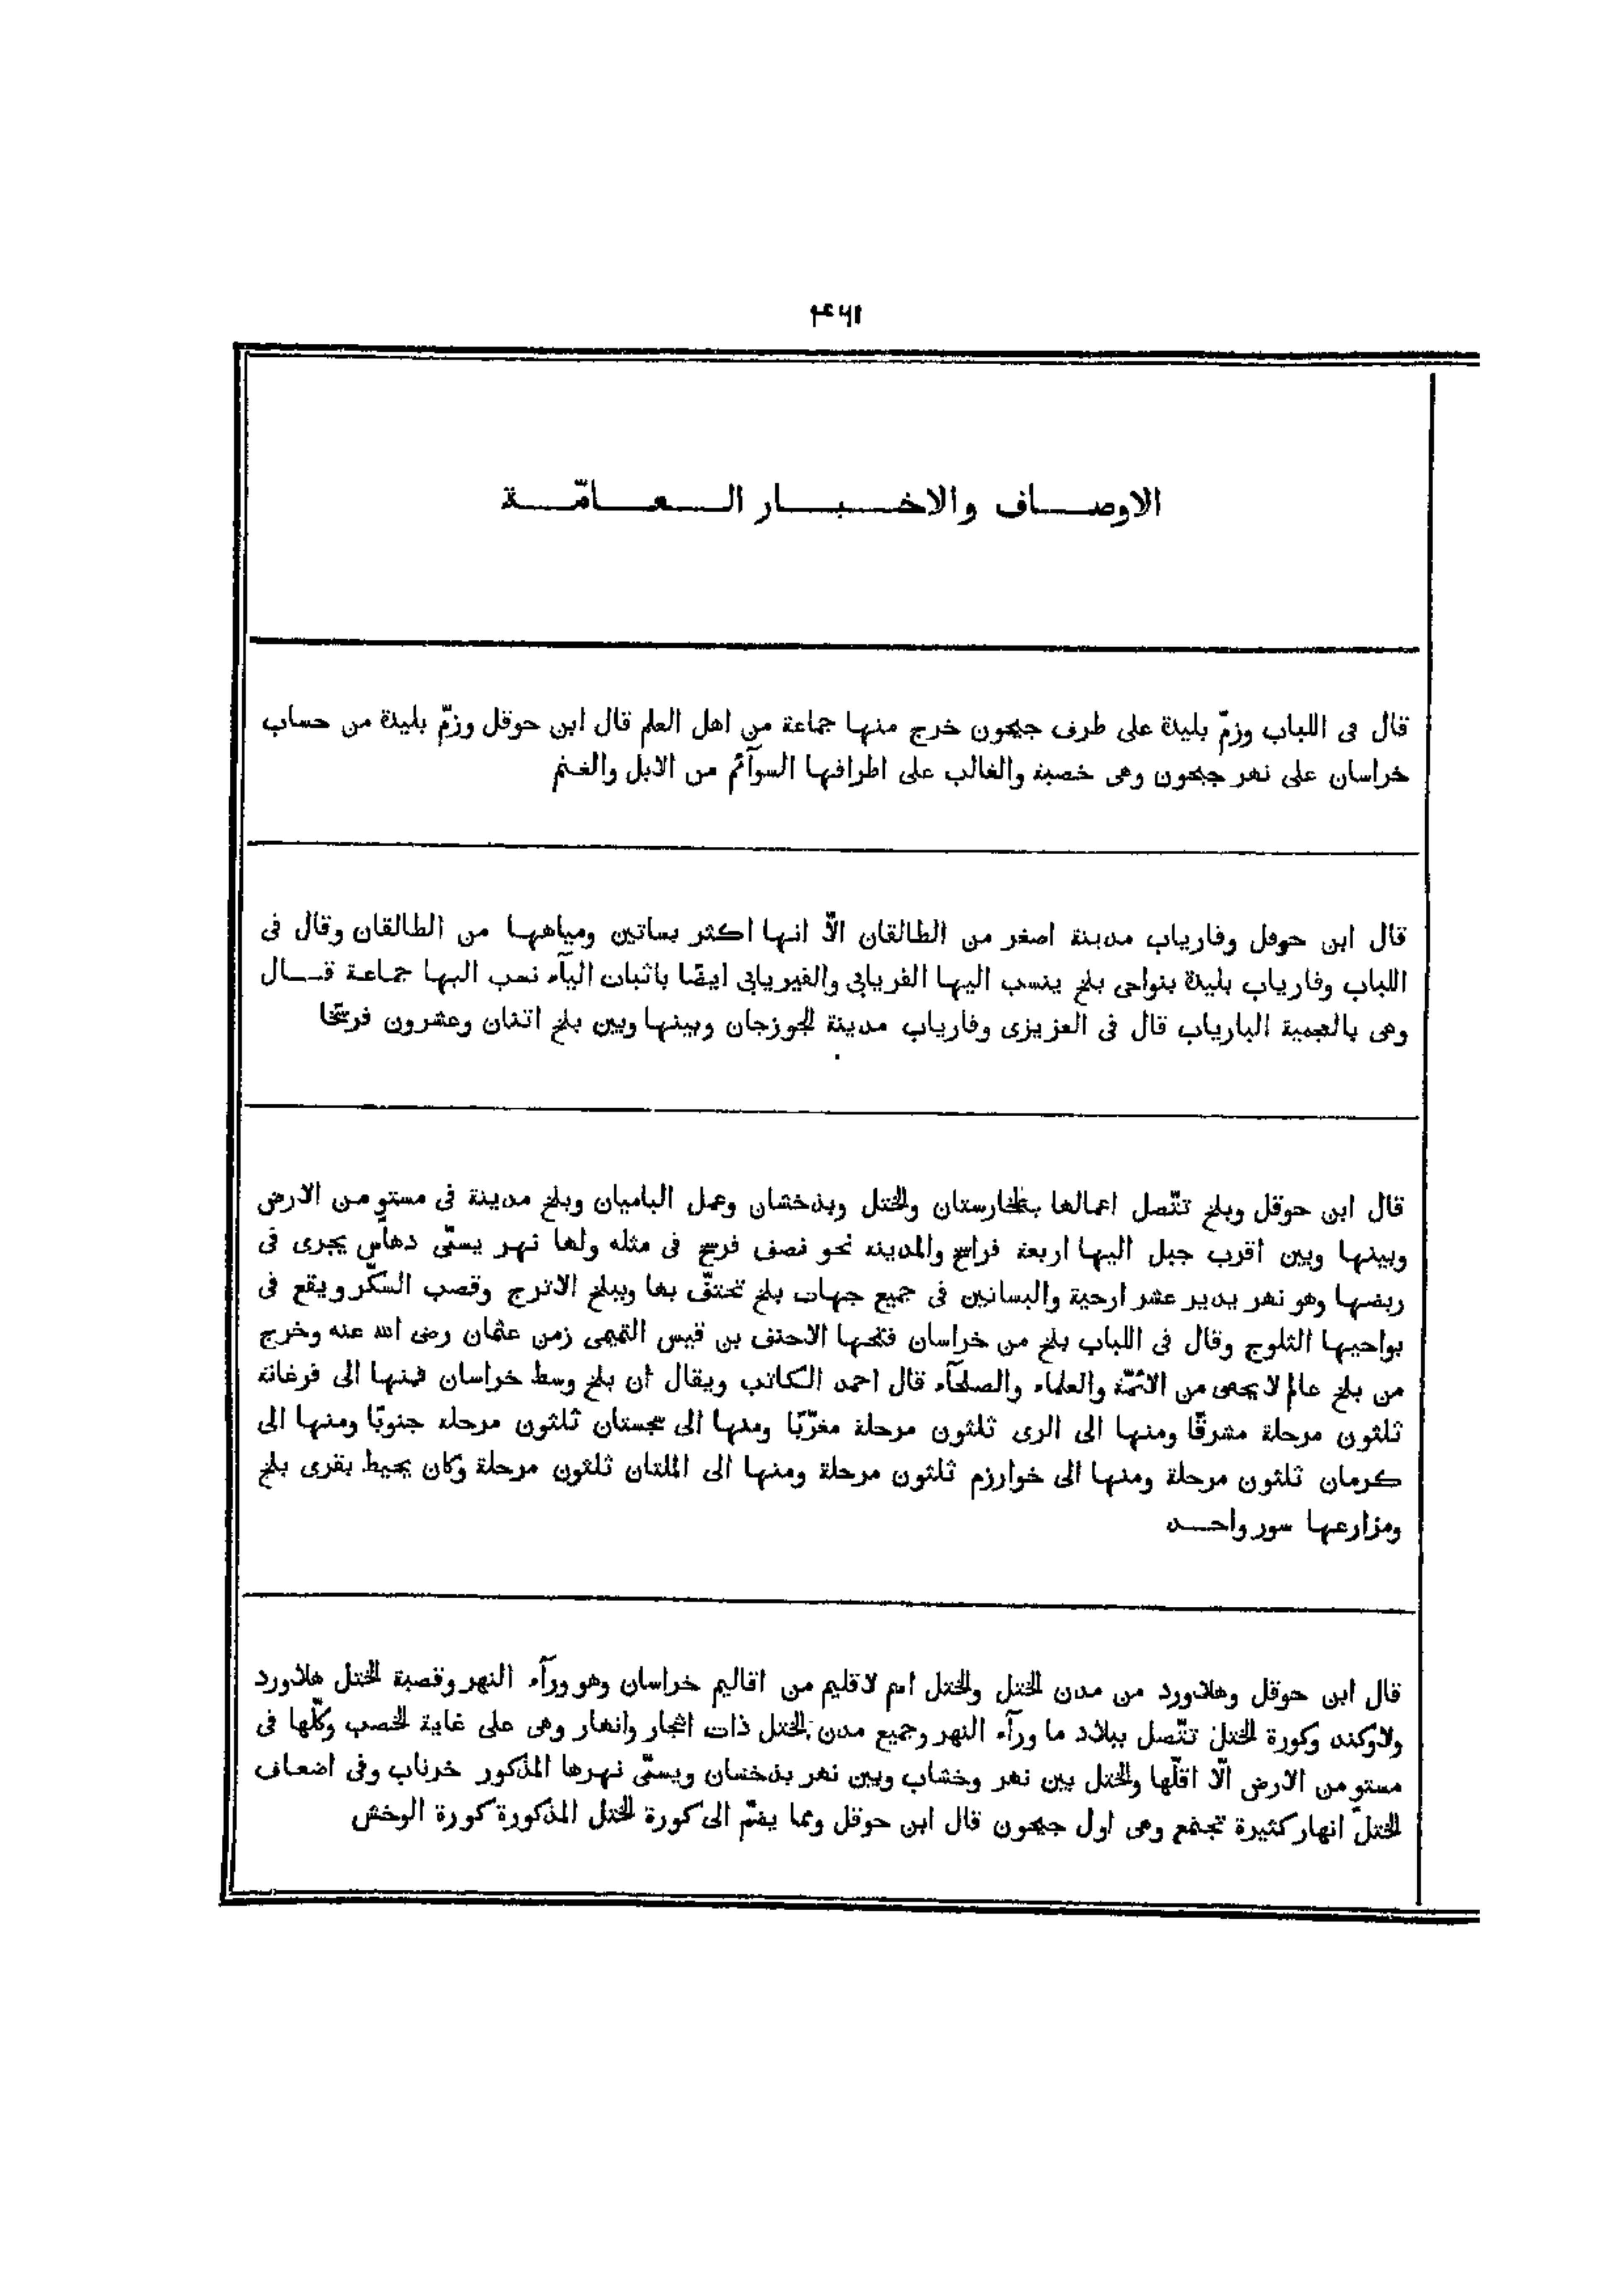 ۴۶۱
الاوصاف والاخبار العامّة
قال فى اللباب وزمّ بليدة على طرف جيحون خرج منها جماعة من اهل العلم قال ابن حوقل وزمّ بليدة من حساب
خراسان على نهر جيحون وهى خصبة والغالب على اطرافها السوآئم من الابل والغنم
قال ابن حوقل وفارياب مدينة اصغر من الطالقان الّا انها اكثر بساتين ومياهها من الطالقان وقال فى
اللباب وفارياب بليدة بنواحى بلخ ينسب اليها الفريابى والفيريابى ايضا باثبات اليآء نسب اليها جماعة قال
وهى بالعجمية الباریاب قال فى العزيزى وفارياب مدينة للجوزجان وبينها وبين بلخ اثنان وعشرون فرسخا
قال ابن حوقل وبلخ تتّصل اعمالها بطخارستان والختل وبذخشان وعمل الباميان وبلخ مدينة فى مستوٍ من الارض
وبينها وبين اقرب جبل اليها اربعة فراسخ والمدينة نحو نصف فرسخ فى مثله ولها نهر يسمّى دهاس يجرى فى
ربضها وهو نهر يدير عشر ارحية والبساتين فى جميع جهات بلخ تحتفّ بها وببلخ الاترج وقصب السكّر ويقع فى
نواحيها الثلوج وقال فى اللباب بلخ من خراسان فتحها الاحنف بن قيس التميمى زمن عثمان رضى الله عنه وخرج
من بلخ عالم لا يحصى من الائمّة والعلماء والصلحآء قال احمد الكاتب ويقال ان بلخ وسط خراسان فمنها الى فرغانة
ثلثون مرحلة مشرقًا ومنها الى الرى ثلثون مرحلة مغرّبًا ومنها الى سجستان ثلثون مرحلة جنوبًا ومنها الى
كرمان ثلثون مرحلة ومنها الى خوارزم ثلثون مرحلة ومنها الى الملتان ثلثون مرحلة وكان يحيط بقرى بلخ
ومزارعها سور واحد
قال ابن حوقل وهلاورد من مدن الختل والختل اسم لاقليم من اقاليم خراسان وهو ورآء النهر وقصبة الختل هلاورد
ولاوكند وكورة الختل تتّصل ببلاد ما ورآء النهر وجميع مدن الختل ذات اشجار وانهار وهى على غاية الخصب وكلّها فى
مستوٍ من الارض الّا اقلّها والختل بين نهر وخشاب وبين نهر بذخشان ويسمّى نهرها المذكور خرناب وفى اضعاف
الختل انهار كثيرة تجتمع وهى اول جيحون قال ابن حوقل ومما يضمّ الى كورة الختل المذكورة كورة الوخش